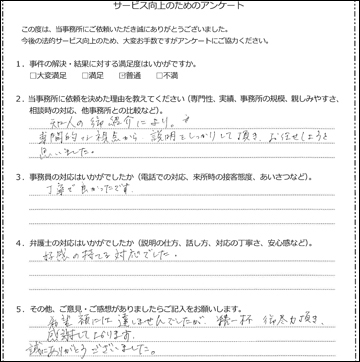 サービス向上のためのアンケート
この度は、当事務所にご依頼いただき誠にありがとうございました。
今後の法的サービス向上のため、大変お手数ですがアンケートにご協力ください。
1．事件の解決・結果に対する満足度はいかがですか。
□大変満足 □満足 ☑普通 □不満
2．当事務所に依頼を決めた理由を教えてください（専門性、実績、事務所の規模、親しみやすさ、
相談時の対応、他事務所との比較など）。
知人の御紹介により。
専門的な視点から 説明をしっかりして頂き、お任せしようと
思いました。
3．事務員の対応はいかがでしたか（電話での対応、来所時の接客態度、あいさつなど）。
丁寧で良かったです。
4．弁護士の対応はいかがでしたか（説明の仕方、話し方、対応の丁寧さ、安心感など）。
好感の持てる対応でした。
5．その他、ご意見・ご感想がありましたらご記入をお願いします。
希望額には達しませんでしたが、精一杯 御尽力頂き、
感謝しております。
誠にありがとうございました。